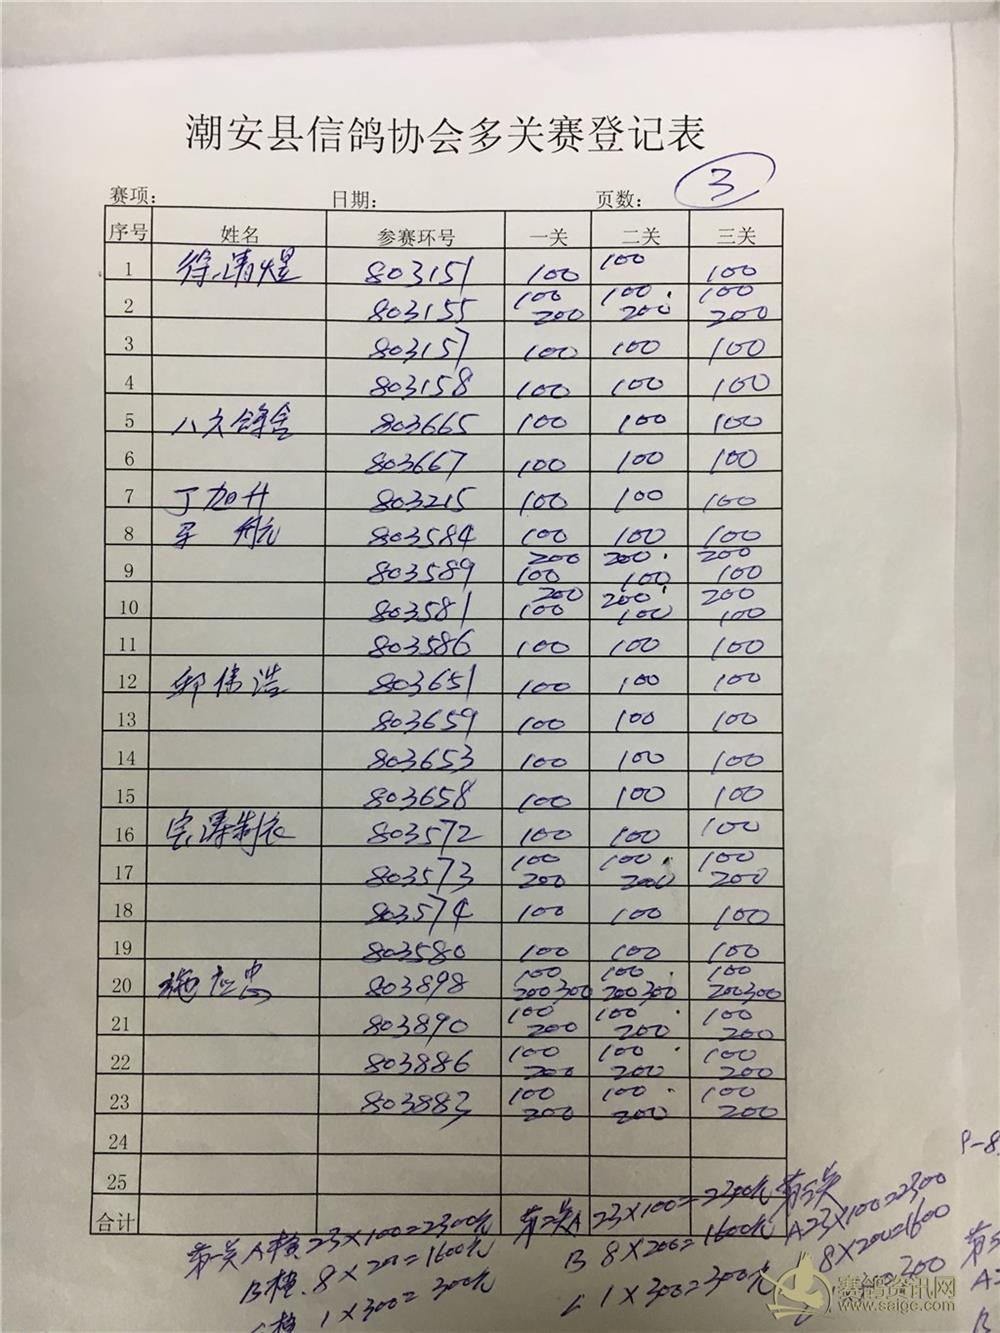 潮安县信鸽协会多关赛登记表
3
赛项: 日期: 页数:
序号 姓名 参赛环号 一关 二关 三关
1 徐清煜 803151 100 100 100
2 803155 100 200 100 200 100 200
3 803157 100 100 100
4 803158 100 100 100
5 八六鸽舍 803665 100 100 100
6 803667 100 100 100
7 丁旭升 803215 100 100 100
8 航 803584 100 100 100
9 803589 200 100 200 100 200 100
10 803581 200 100 200 100 200 100
11 803586 100 100 100
12 郑伟浩 803651 100 100 100
13 803659 100 100 100
14 803653 100 100 100
15 803658 100 100 100
16 宏涛制衣 803572 100 100 100
17 803573 100 200 100 200 100 200
18 803574 100 100 100
19 803580 100 100 100
20 施应忠 803898 100 200 300 100 200 300 100 200 300
21 803890 100 200 100 200 100 200
22 803886 100 200 100 200 100 200
23 803883 100 200 100 200 100 200
24
25
合计
第一关A横 23×100=2300元 第二关A 23×100=2300元 第三关 A23×100=2300
B横. 8×200=1600元 B 8×200=1600元 8×200=1600
横 1×300=300元 1×300=300元
P-8
A
B
赛鸽资讯网
www.saige.com